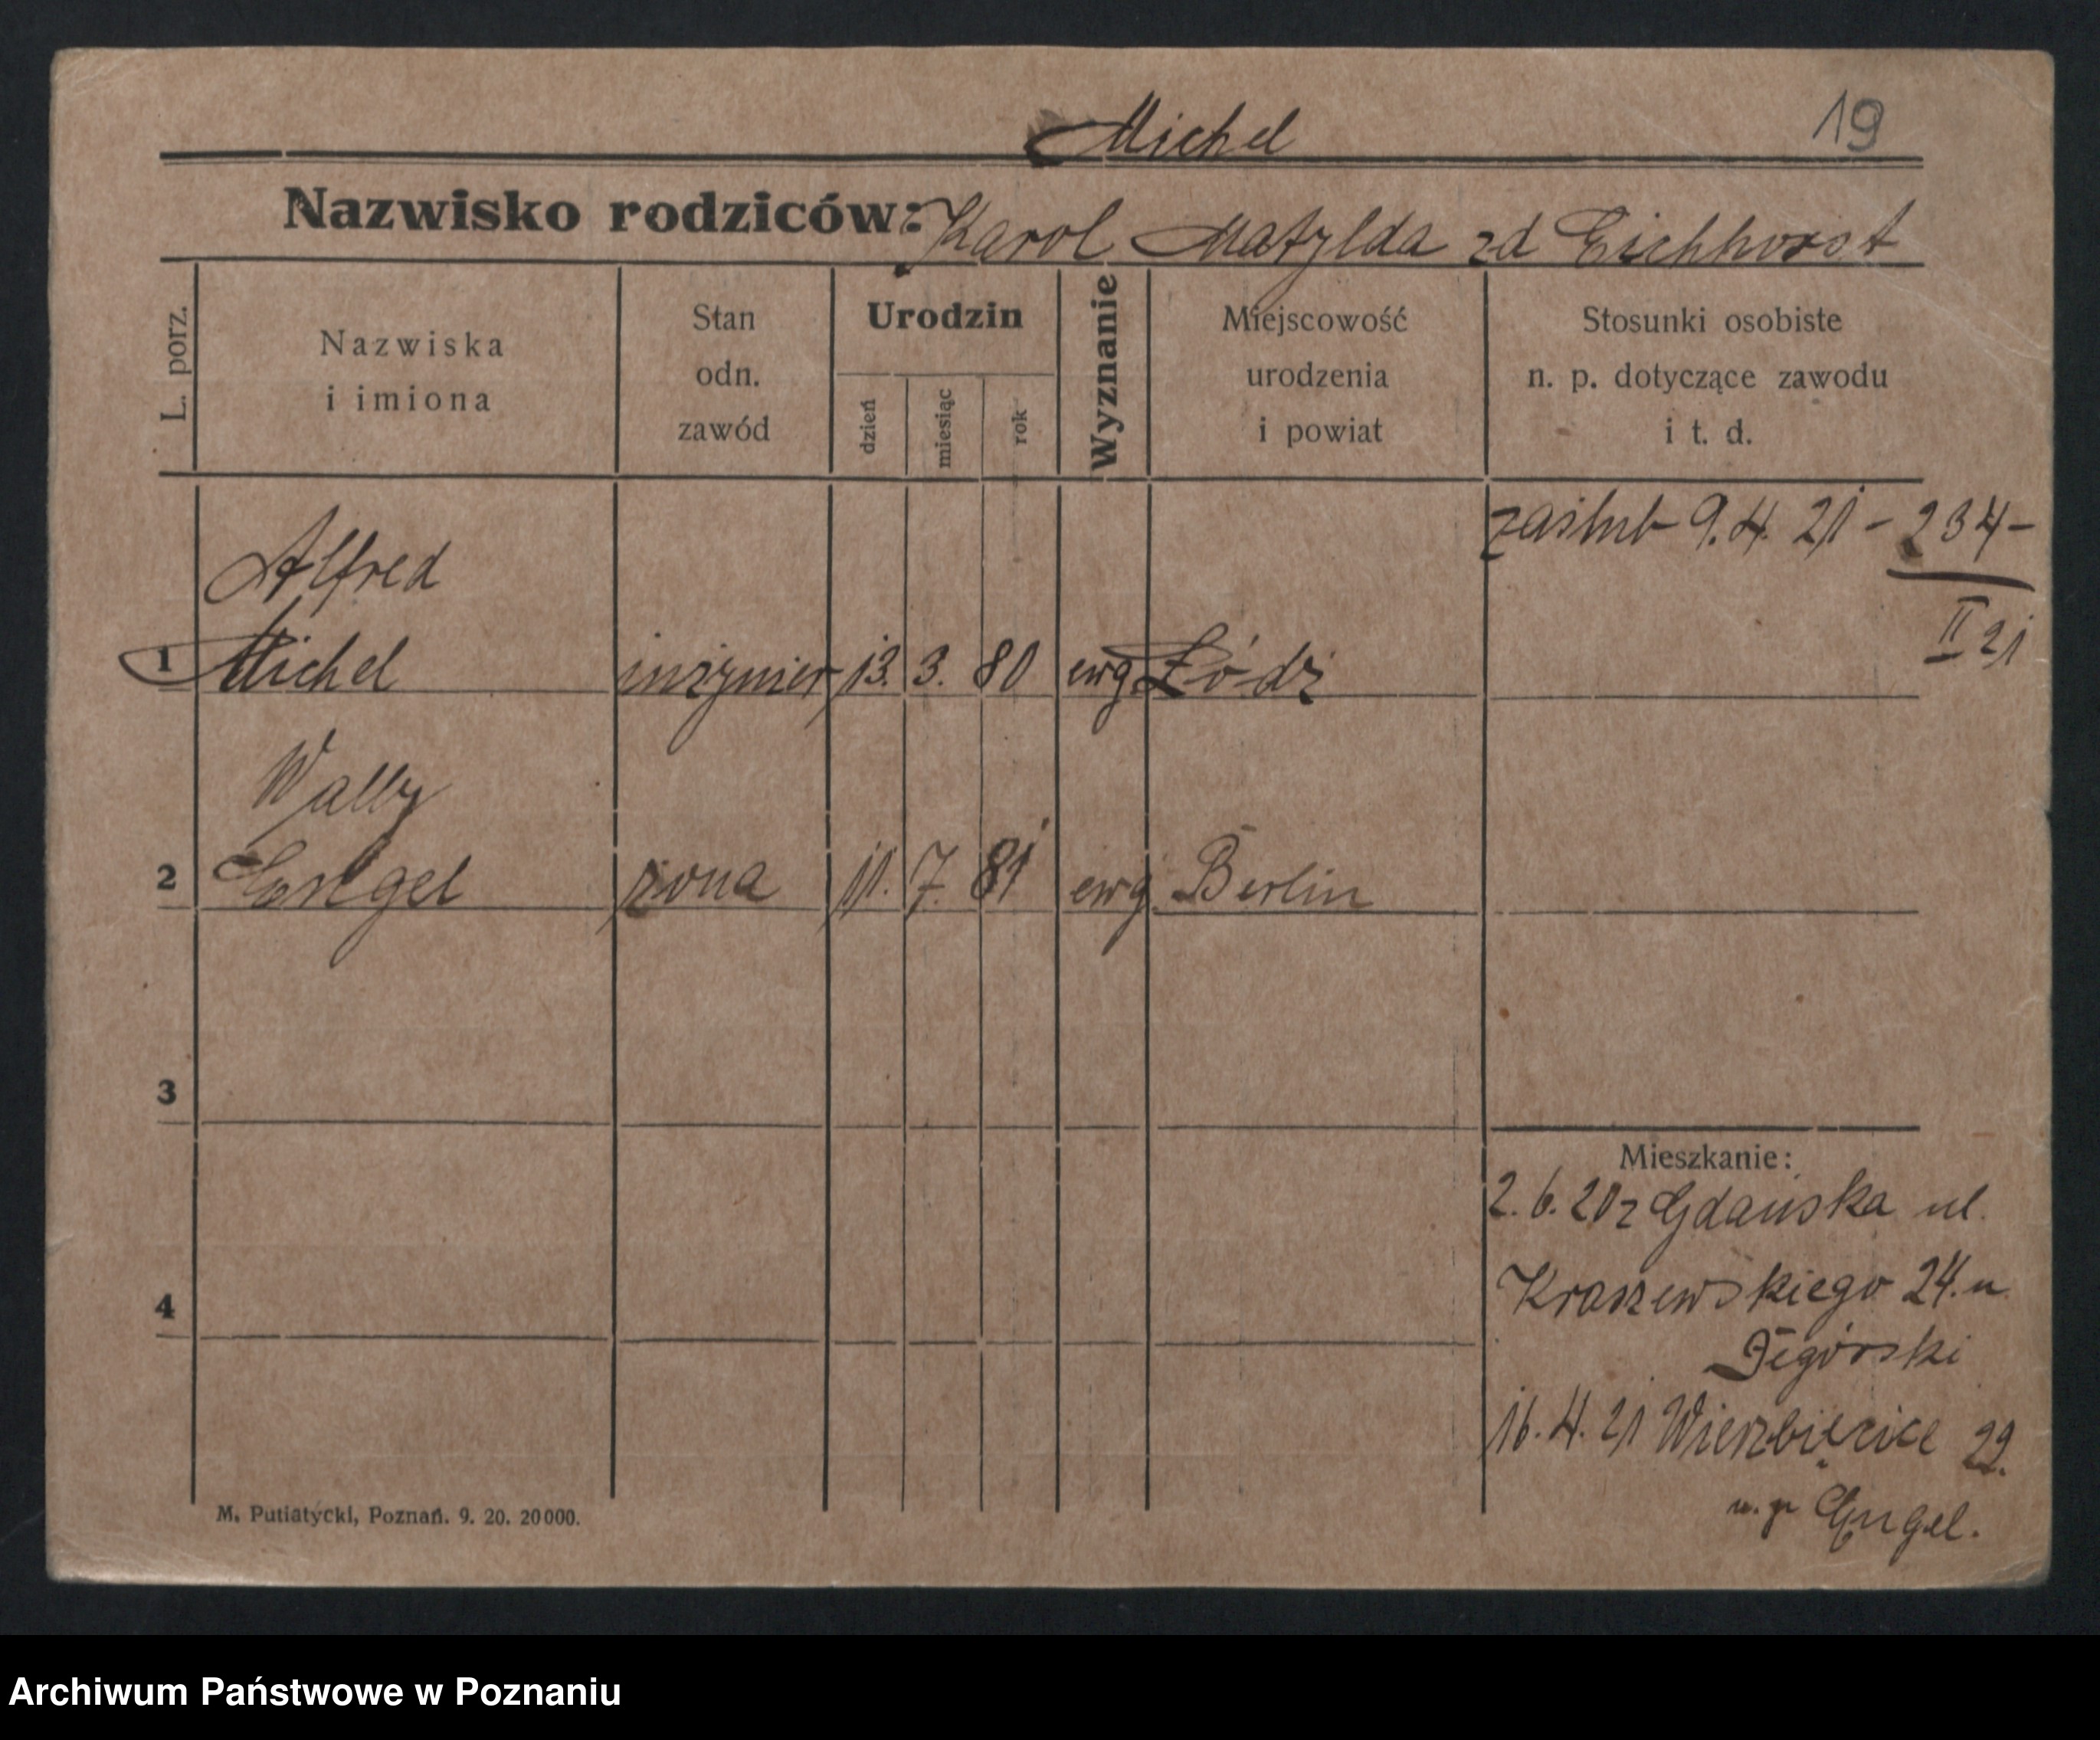 Michel
19
Nazwisko rodziców: Karol Matylda zd Eichhorst
L. porz.
Nazwiska
i imiona
Stan
odn.
zawód
Urodzin
dzień
miesiąc
rok
Wyznanie
Miejscowość
urodzenia
i powiat
Stosunki osobiste
n. p. dotyczące zawodu
i t. d.
zaślub 9.4. 21 - 234 -
II 21
Alfred
1 Michel inżynier 13. 3. 80 ewg Łódź
Wally
2 Engel żona 11. 7. 81 ewg Berlin
3
4
Mieszkanie:
2. 6. 20 z Gdańska ul.
Kraszewskiego 24. u
16. 4. 21 Wierzbięcice 22.
Engel.
M. Putiatycki, Poznań. 9. 20. 20000.
Archiwum Państwowe w Poznaniu